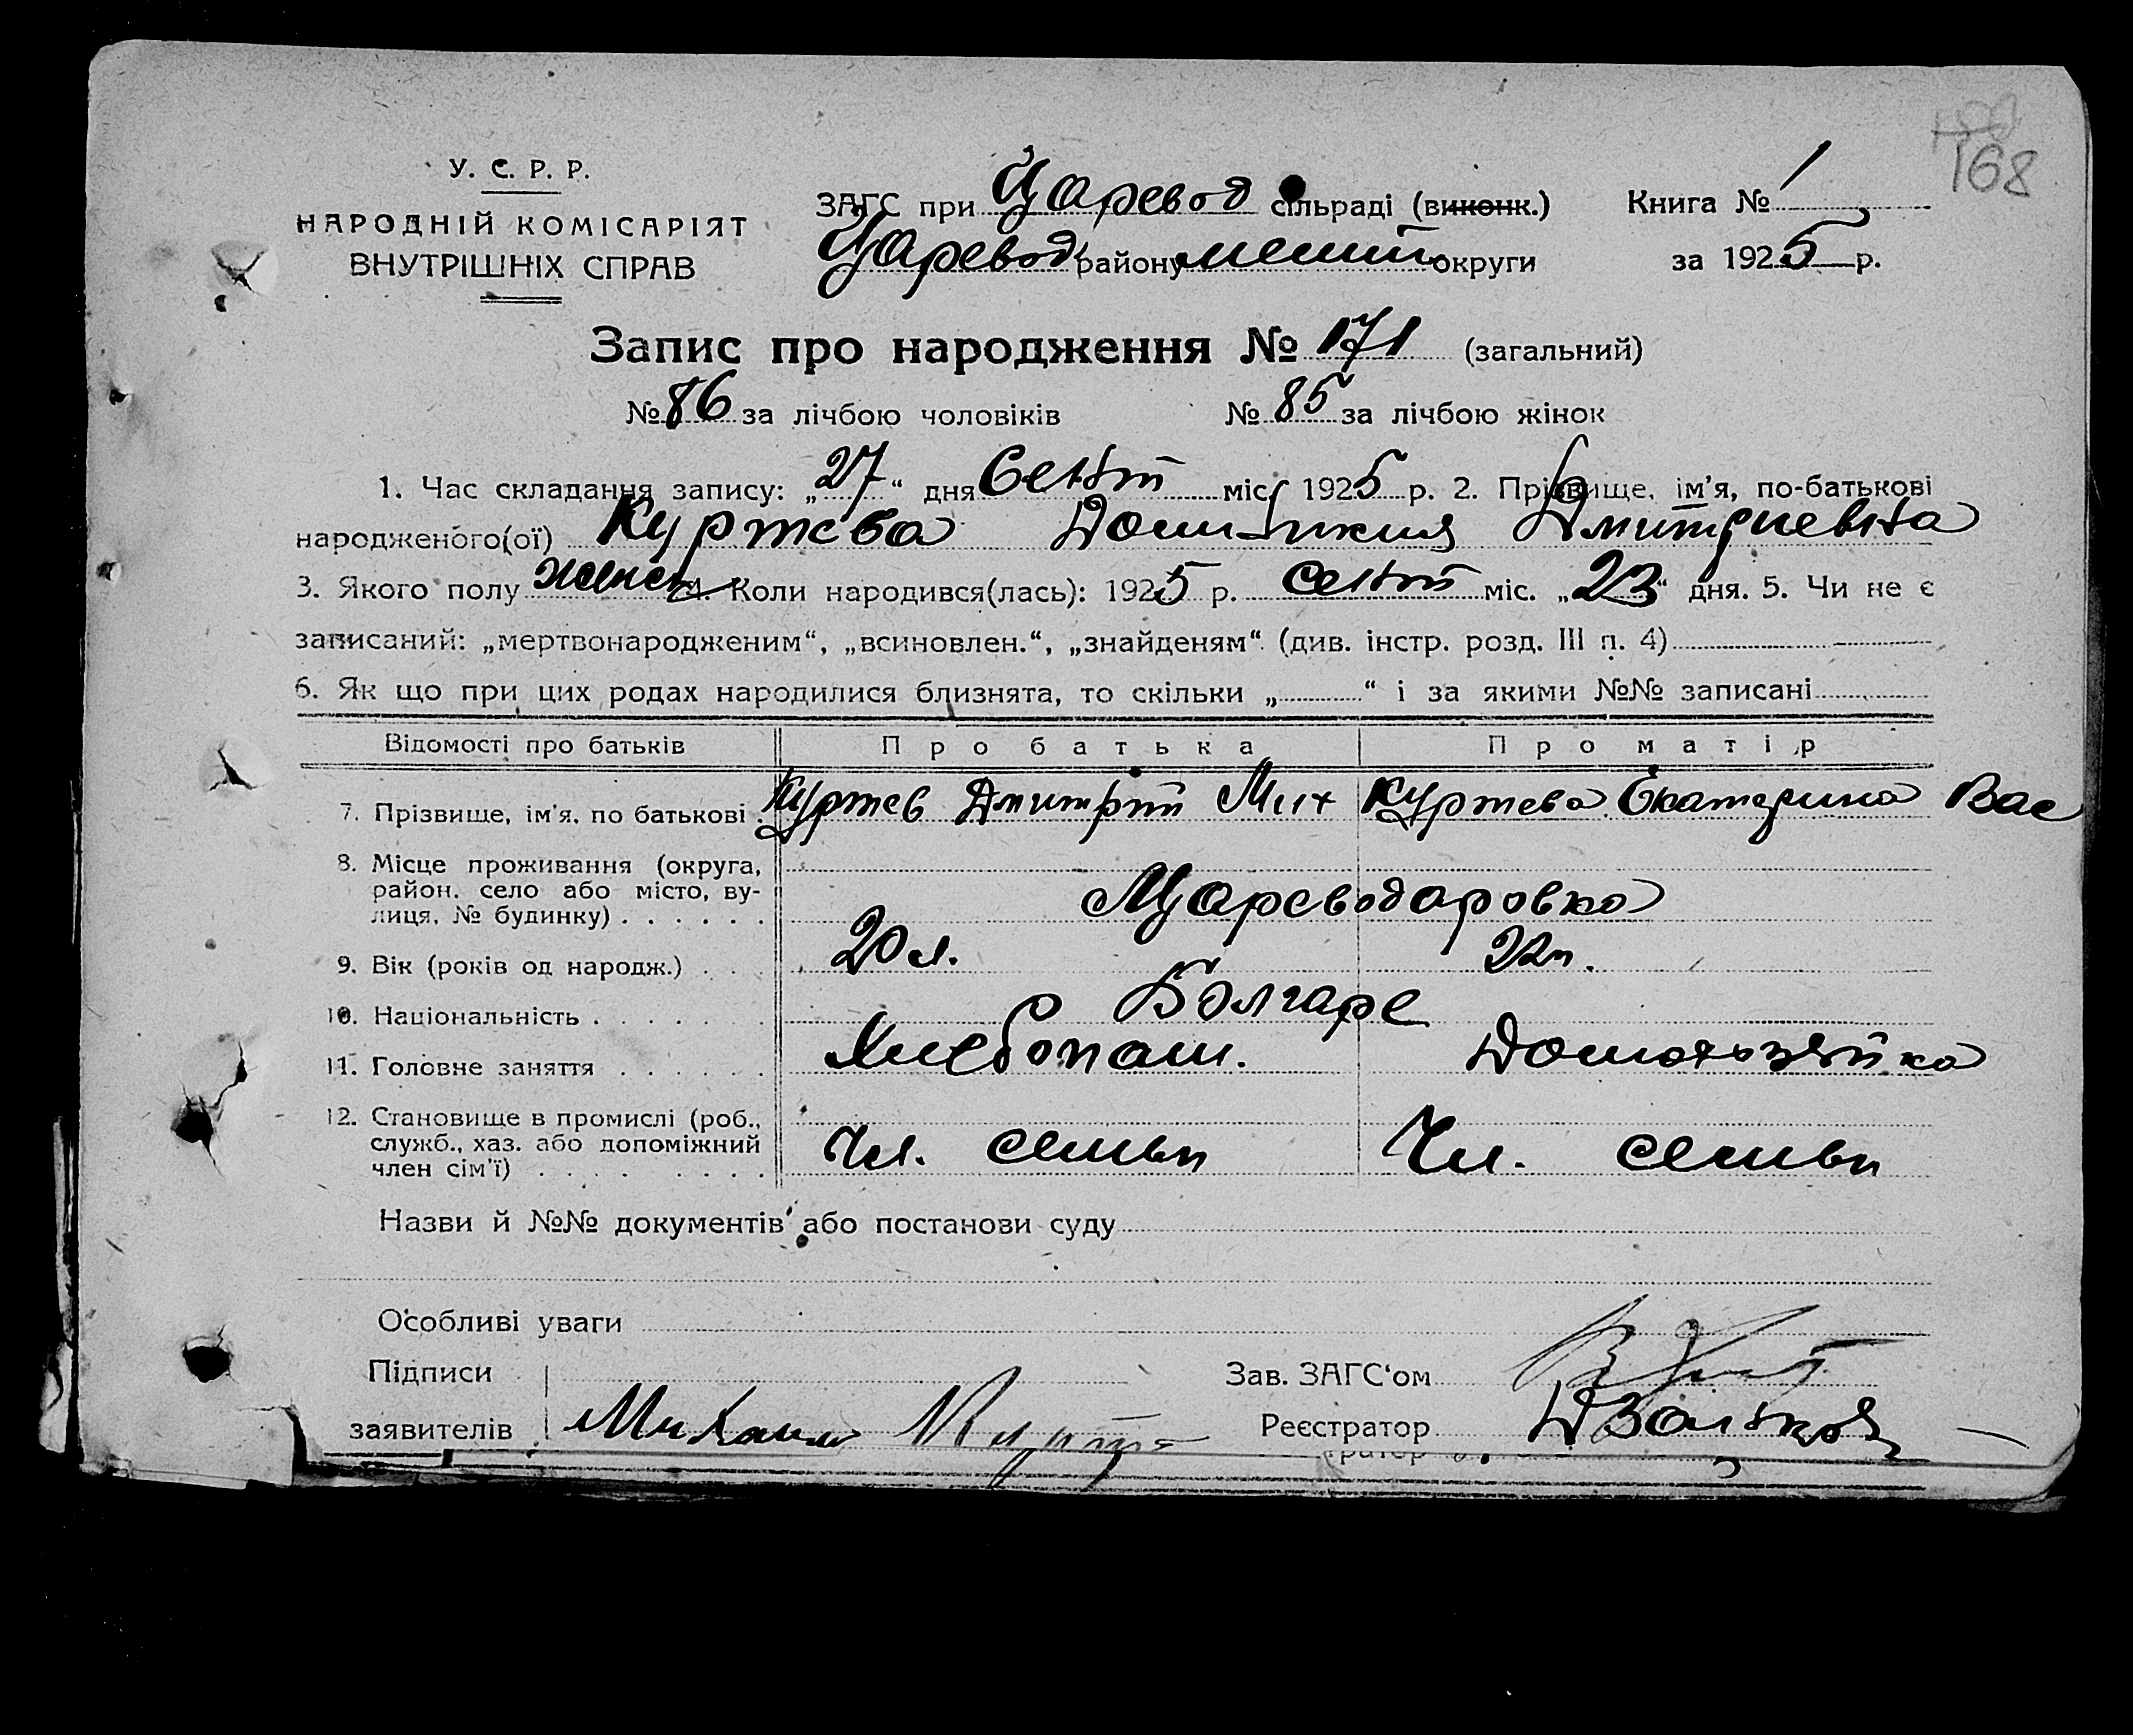 168
У. С. Р. Р.
НАРОДНІЙ КОМІСАРІЯТ
ВНУТРІШНІХ СПРАВ
ЗАГС при Царевод сільраді (виконк.) Книга № 1
Царевод району Мелит округи за 1925 р.
Запис про народження № 171 (загальний)
№ 86 за лічбою чоловіків № 85 за лічбою жінок
1. Час складання запису: „27“ дня Сент міс. 1925 р. 2. Прізвище, ім'я, по-батькові
народженого(ої) Куртева Домникия Дмитриевна
3. Якого полу женск 4. Коли народився(лась): 1925 р. сент міс. „23“ дня. 5. Чи не є
записаний: „мертвонародженим“, „всиновлен.“, „знайденям“ (див. інстр. розд. III п. 4)
6. Як що при цих родах народилися близнята, то скільки „ “ і за якими №№ записані
Відомості про батьків Про батька Про матір
7. Прізвище, ім'я, по батькові Куртев Дмитрий Мих Куртева Екатерина Вас
8. Місце проживання (округа,
район, село або місто, ву-
лиця, № будинку) Цареводаровка
9. Вік (років од народж.) 20 л. 22 л.
10. Національність Болгаре
11. Головне заняття Хлебопаш. Домохозяйка
12. Становище в промислі (роб.,
служб., хаз. або допоміжний
член сім'ї) Чл. семьи Чл. семьи
Назви й №№ документів або постанови суду
Особливі уваги
Підписи Зав. ЗАГС'ом
заявителів Михаил Реєстратор